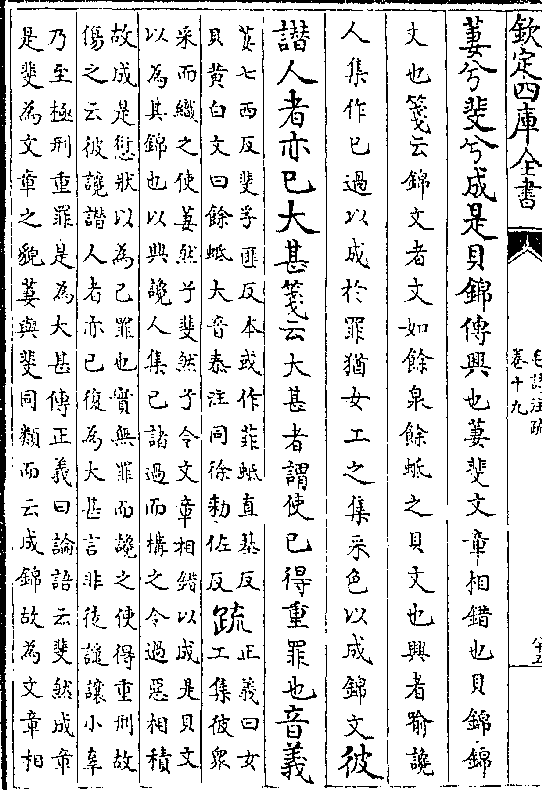 欽定四庫全書
毛詩注疏
卷十九
八十五
萋兮斐兮成是貝錦傳興也萋斐文章相錯也貝錦錦
文也箋云錦文者文如餘泉餘蚳之貝文也興者喻讒
人集作已過以成於罪猶女工之集采色以成錦文彼
譖人者亦已大甚箋云大甚者謂使已得重罪也音義
萋七西反斐孚匪反本或作菲蚳直基反
貝黃白文曰餘蚳大音泰注同徐勑佐反
疏
正義曰女
工集彼眾
采而織之使萋然兮斐然兮令文章相錯以成是貝文
以為其錦也以興讒人集已諸過而構之令過惡相積
故成是愆狀以為已罪也實無罪而讒之使得重刑故
傷之云彼讒譖人者亦已復為大甚言非徒譴讓小辜
乃至極刑重罪是為大甚傳正義曰論語云斐然成章
是斐為文章之貌萋與斐同類而云成錦故為文章相